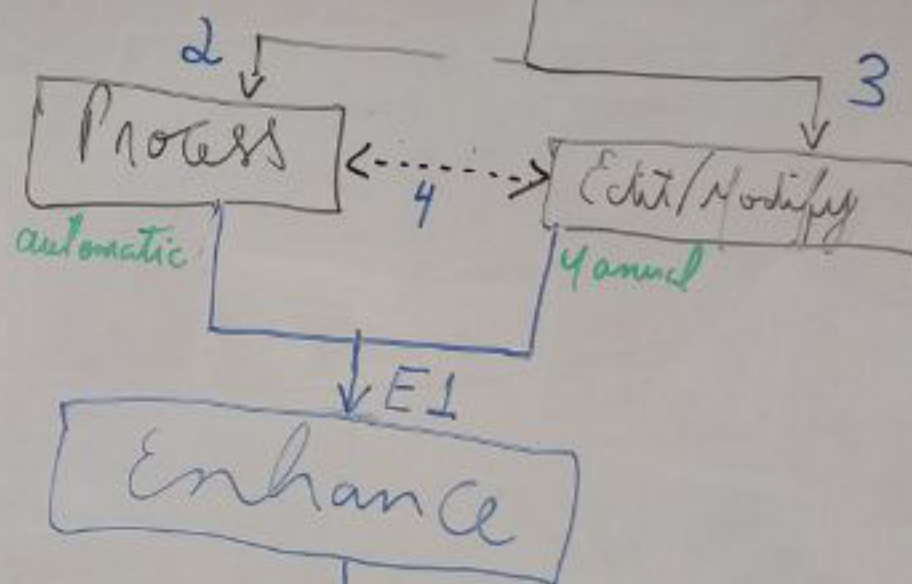 2
3
Process
4
Edit/Modify
automatic
Manual
E1
Enhance